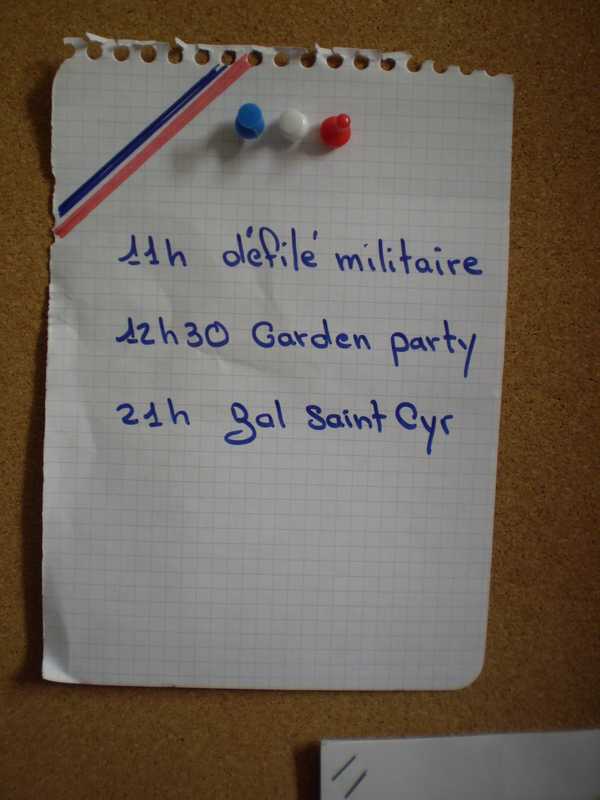 11h défilé militaire
12h30 Garden party
21h Bal Saint Cyr